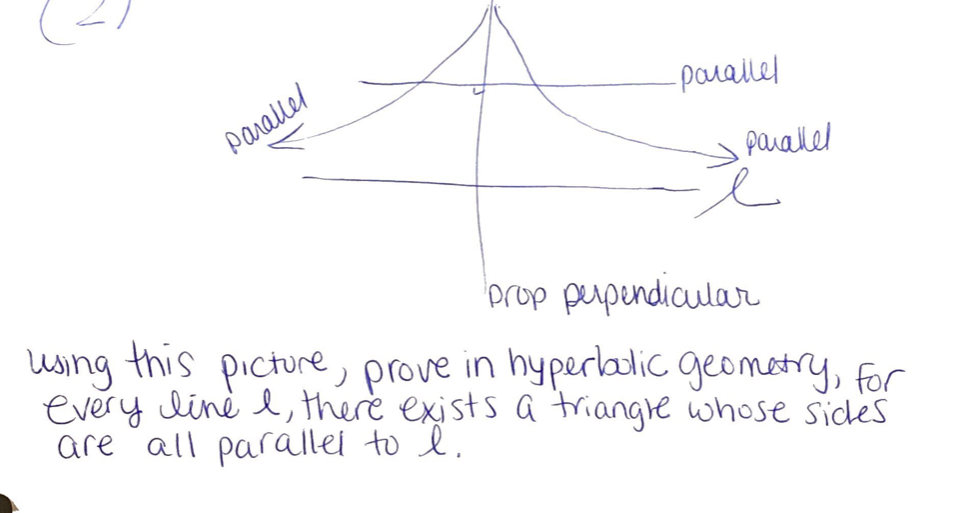 (2)
parallel
parallel
parallel
l
Drop perpendicular
Using this picture, prove in hyperbolic geometry, for
every line l, there exists a triangle whose sides
are all parallel to l.